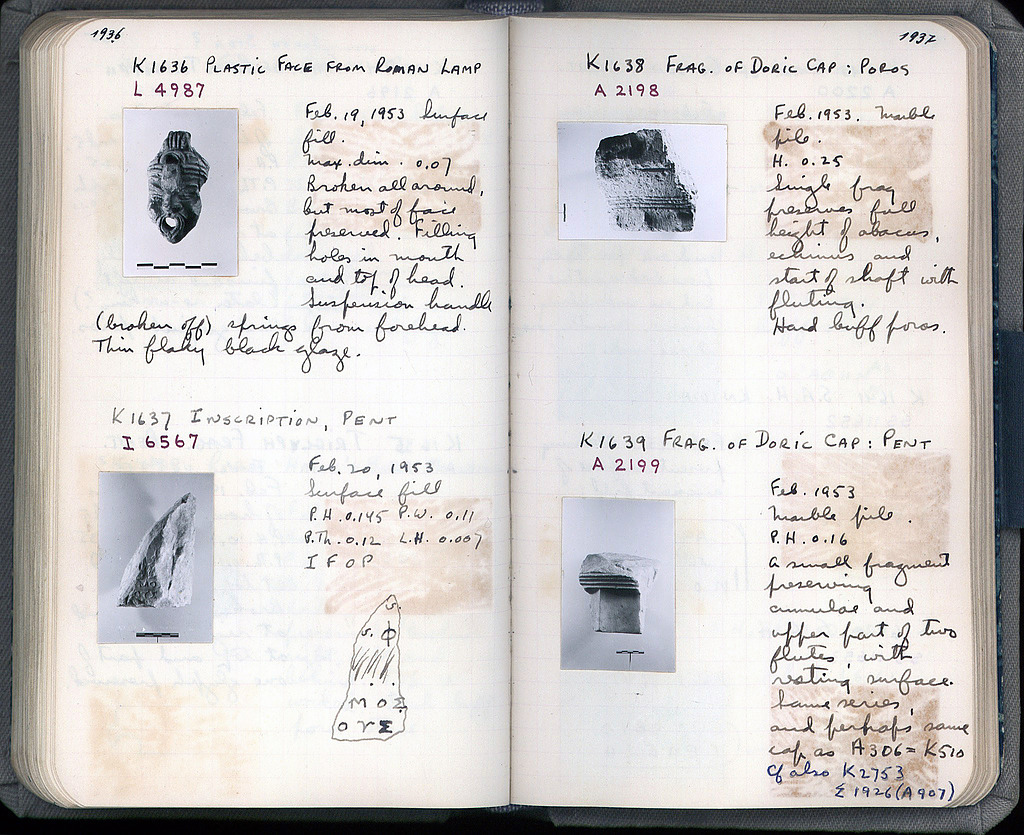 1936
K1636 PLASTIC FACE FROM ROMAN LAMP
L 4987
Feb. 19, 1953 Surface
fill.
Max. dim. 0.07
Broken all around,
but most of face
preserved. Filling
holes in mouth
and top of head.
Suspension handle
(broken off) springs from forehead.
Thin flaky black glaze.
K1637 INSCRIPTION, PENT
I 6567
Feb. 20, 1953
Surface fill
P.H. 0.145 P.W. 0.11
P.Th. 0.12 L.H. 0.007
I F O P
Φ
Μ Ο Σ
Ο Υ Σ
1937
K1638 FRAG. OF DORIC CAP: POROS
A 2198
Feb. 1953. Marble
pile.
H. 0.25
Single frag
preserves full
height of abacus,
echinus and
start of shaft with
fluting.
Hard buff poros.
K1639 FRAG. OF DORIC CAP: PENT
A 2199
Feb. 1953
Marble pile.
P.H. 0.16
A small fragment
preserving
annulae and
upper part of two
flutes, with
resting surface.
Same series,
and perhaps same
cap as A306 = K510
Cf also K2753
Σ 1926 (A907)